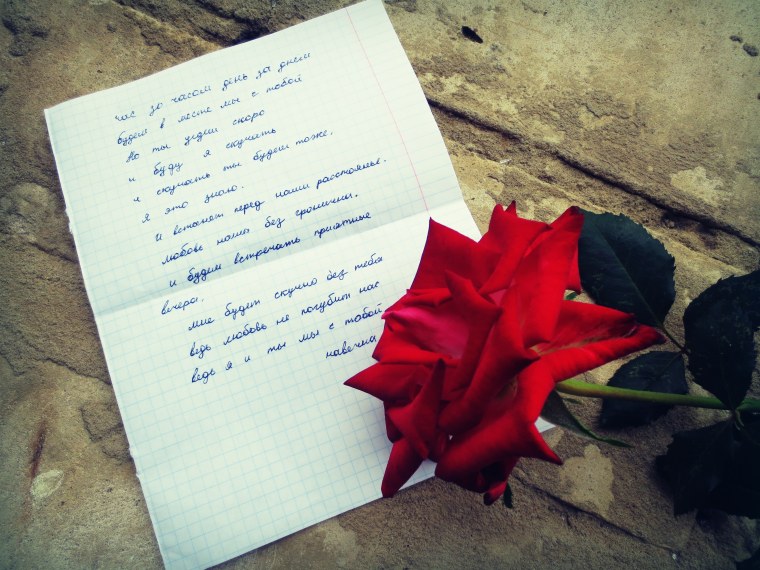 час за часом день за днем
будем в месте мы с тобой
Но ты уедеш скоро
и буду я скучать
и скучать ты будеш тоже.
Я это знаю.
И встанет перед нами расстоянье.
любовь наша без граници.
и будем встречать приятные
вечера.
мне будит скучно без тебя
ведь любовь не погубит нас
ведь я и ты мы с тобой
навечна